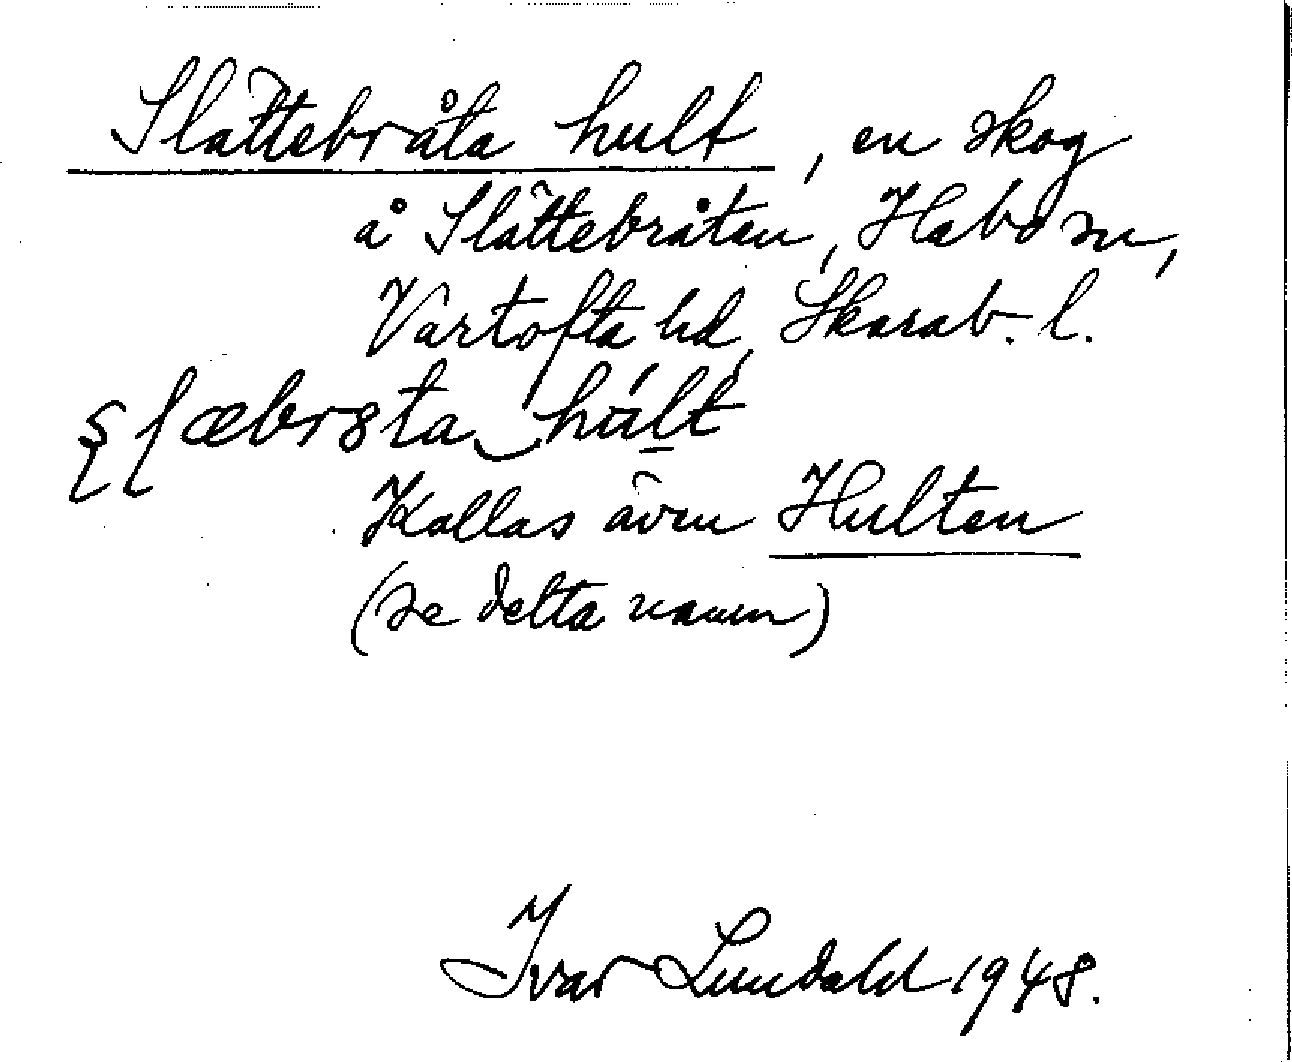 Slättebråta hult, en skog
å Slättebråten, Habo sn,
Vartofta hd, Skarab. l.
hult
Kallas även Hulten
(se detta namn)
Ivar Lundahl 1948.